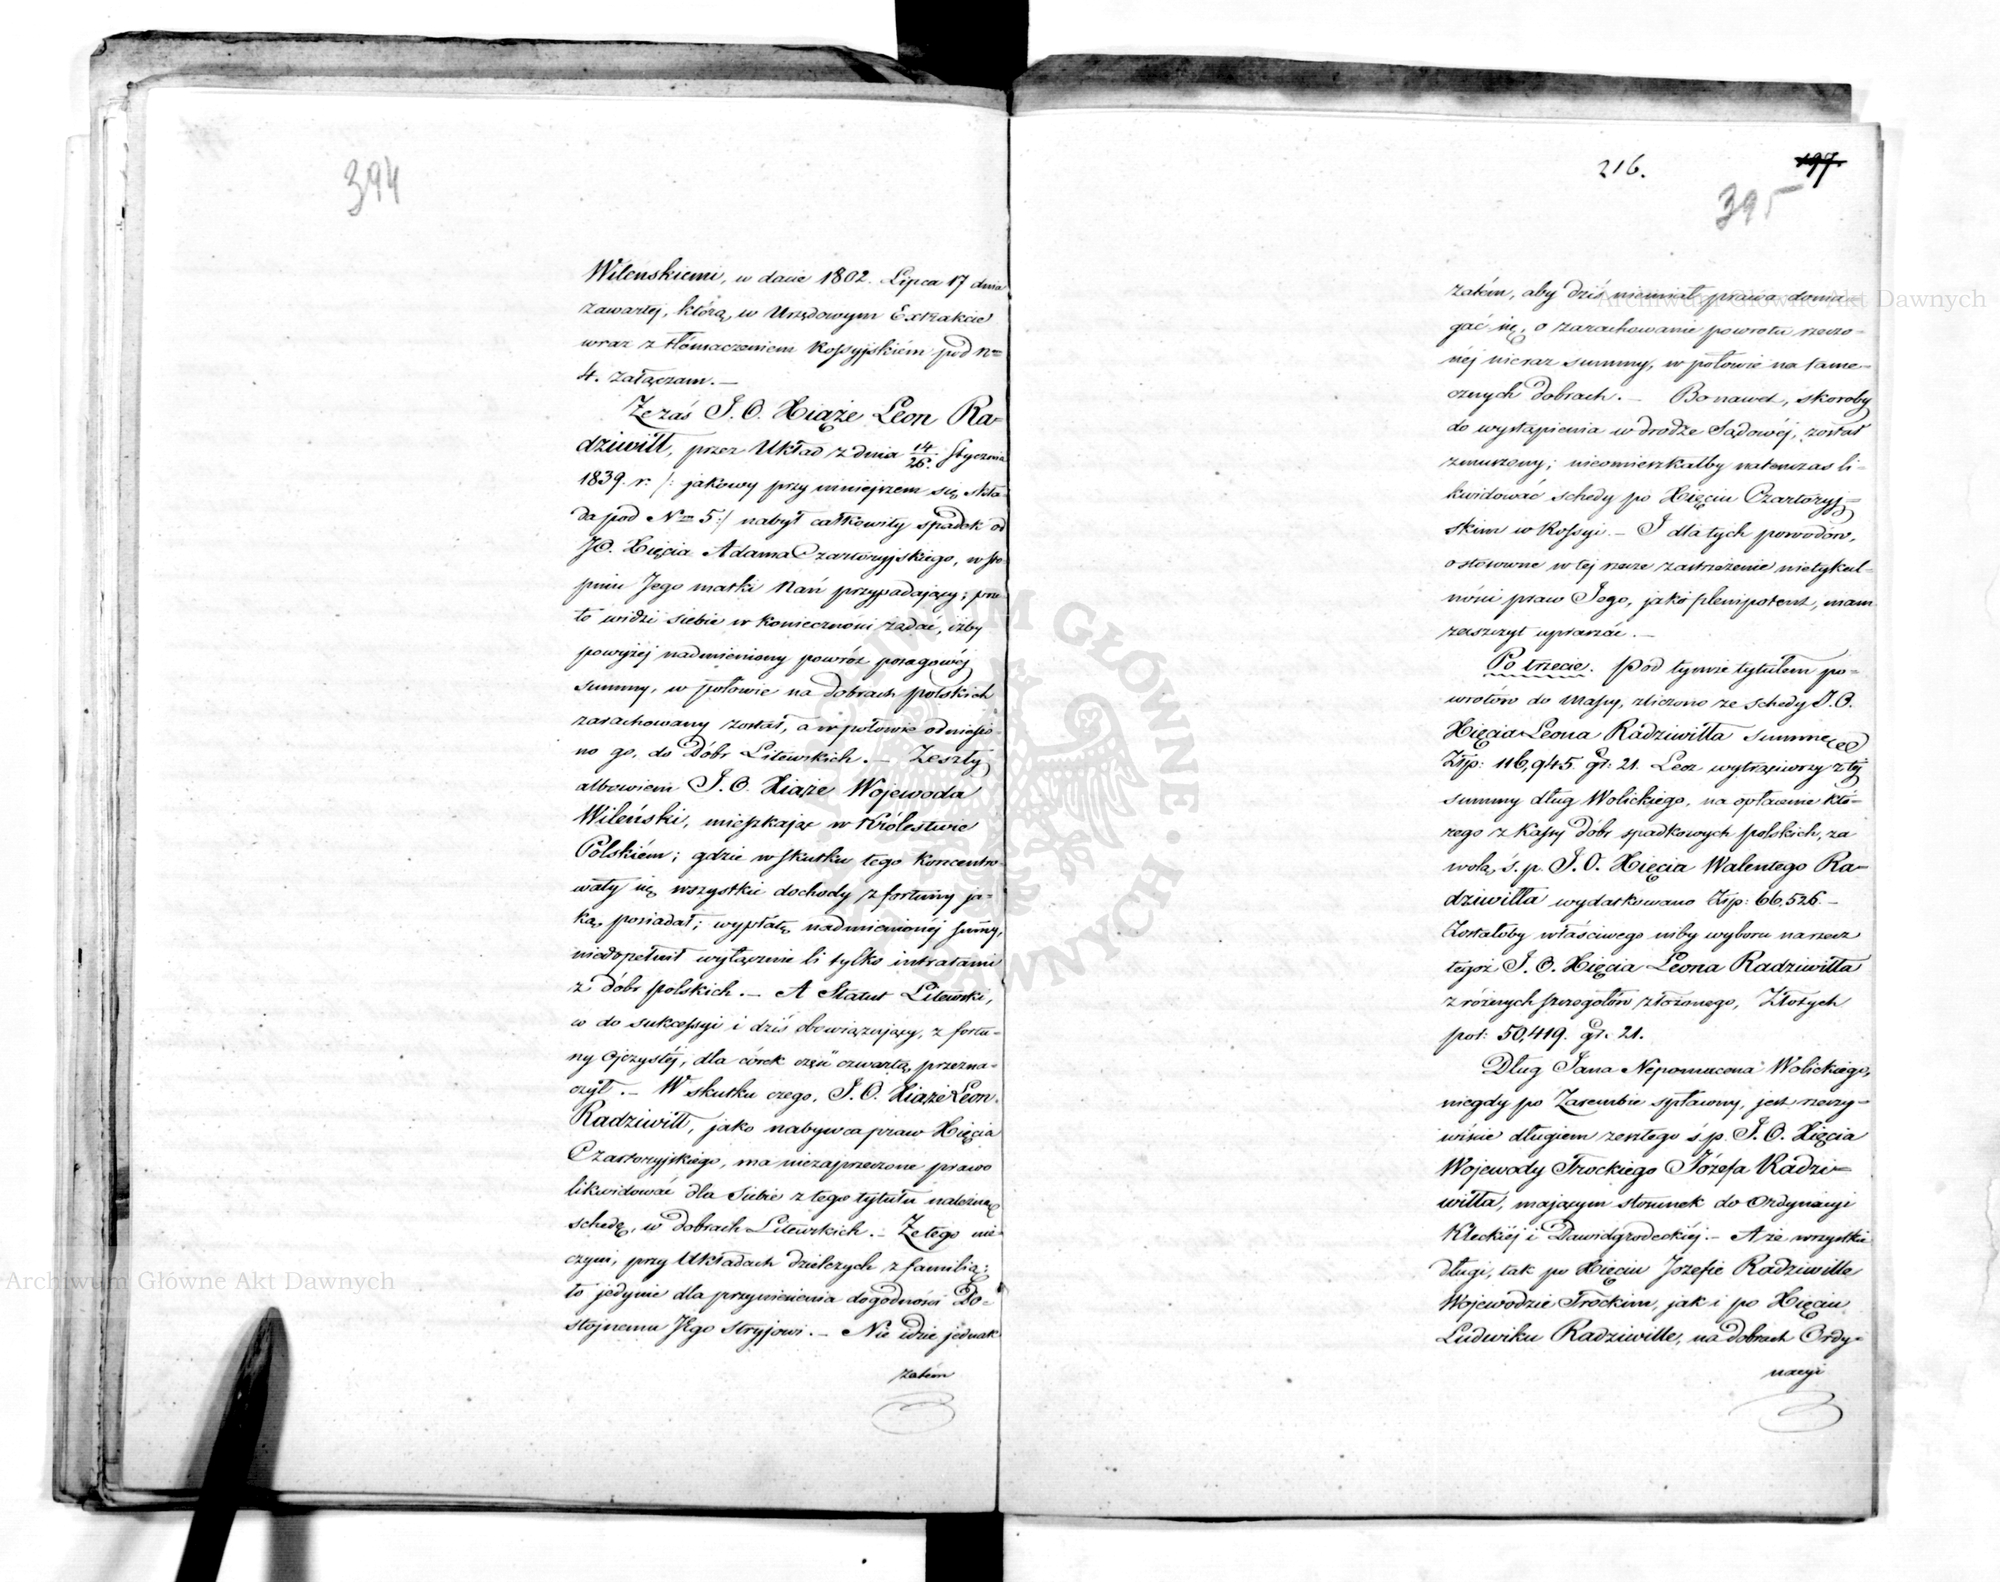 394
Wileńskiemi, w dacie 1802. Lipca 17 dnia
zawartej, którą, w Urzędowym Extrakcie
wraz z tłómaczeniem Rossyjskiém pod Nm
4. załączam. —
Że zaś J. O. Xiąże Leon Ra=
dziwiłł, przez Układ z dnia 14/26. Stycznia
1839. r. /: jakowy przy niniejszem się skła=
da pod Nm 5 :/ nabył całkowity spadek od
JO. Xięcia Adama Czartoryjskiego, w sto=
pniu Jego matki Nań przypadający; prze=
to widzi siebie w konieczności żądać, iżby
powyżej nadmieniony powrót posagowéj
summy, w połowie na dobrach polskich
zarachowany został, a w połowie odniesio=
no go, do Dóbr Litewskich. — Zeszły
albowiem J. O. Xiąże Wojewoda
Wileński, mieszkając w Królestwie
Polskiém; gdzie w skutku tego koncentro=
wały się wszystkie dochody z fortuny ja=
ką, posiadał; wypłatę nadmienionéj summy,
niedopełnił wyłącznie li tylko intratami
z dóbr polskich. — A Statut Litewski,
co do sukcessyi i dziś obowiązujący, z fortu=
ny Ojczystéj, dla córek część czwartą przezna=
czył. — W skutku czego, J. O. Xiąże Leon
Radziwiłł, jako nabywca praw Xięcia
Czartoryjskiego, ma niezaprzeczone prawo
likwidować dla Siebie z tego tytułu należną
schedę, w dobrach Litewskich. — Że tego nie=
czyni, przy Układach dzielczych z familią;
to jedynie dla przyniesienia dogodności Do=
stojnemu Jego Stryjowi. — Nie idzie jednak
zatém
216.
197.
395
zatém, aby dziś niemiał prawa doma=
gać się, o zarachowanie powrotu rzeczo=
néj nieraz summy, w połowie na tame=
cznych dobrach. — Bo nawet, skoroby
do wystąpienia w drodze Sądowéj, został
zmuszony; nieomieszkałby natenczas li=
kwidować schedy po Xięciu Czartoryj=
skim w Rossyi. — I dla tych powodów,
stosowne w téj rzeczy zastrzeżenie nietykal=
ności praw Jego, jako plenipotent, mam
zaszczyt upraszać. —
Po trzecie. Pod tymże tytułem po=
wrotów do Massy, zliczono ze schedy J. O.
Xięcia Leona Radziwiłła summę
Złp: 116,945. gr: 21. Lecz wytrąciwszy z téj
summy dług Wolickiego, na opłacenie któ=
rego z Kassy dóbr spadkowych polskich, za
wolą, ś. p. J. O. Xięcia Walentego Ra=
dziwiłła wydatkowano Złp: 66,526. —
Zostałoby właściwego niby wyboru na rzecz
tegoż J. O. Xięcia Leona Radziwiłła
z różnych szczegółów złożonego, Złotych
pol: 50,419. gr. 21.
Dług Jana Nepomucena Wolickiego,
niegdy po Zarembie spławny, jest rzeczy=
wiście długiem zeszłego ś. p. J. O. Xięcia
Wojewody Trockiego Józefa Radzi=
wiłła, mającym stosunek do Ordynacyi
Kleckiéj i Dawidgrodeckiéj. — A że wszystkie
długi, tak po Xięciu Józefie Radziwille
Wojewodzie Trockim, jak i po Xięciu
Ludwiku Radziwille, na dobrach Ordy=
nacyi
Archiwum Główne Akt Dawnych
Archiwum Główne Akt Dawnych